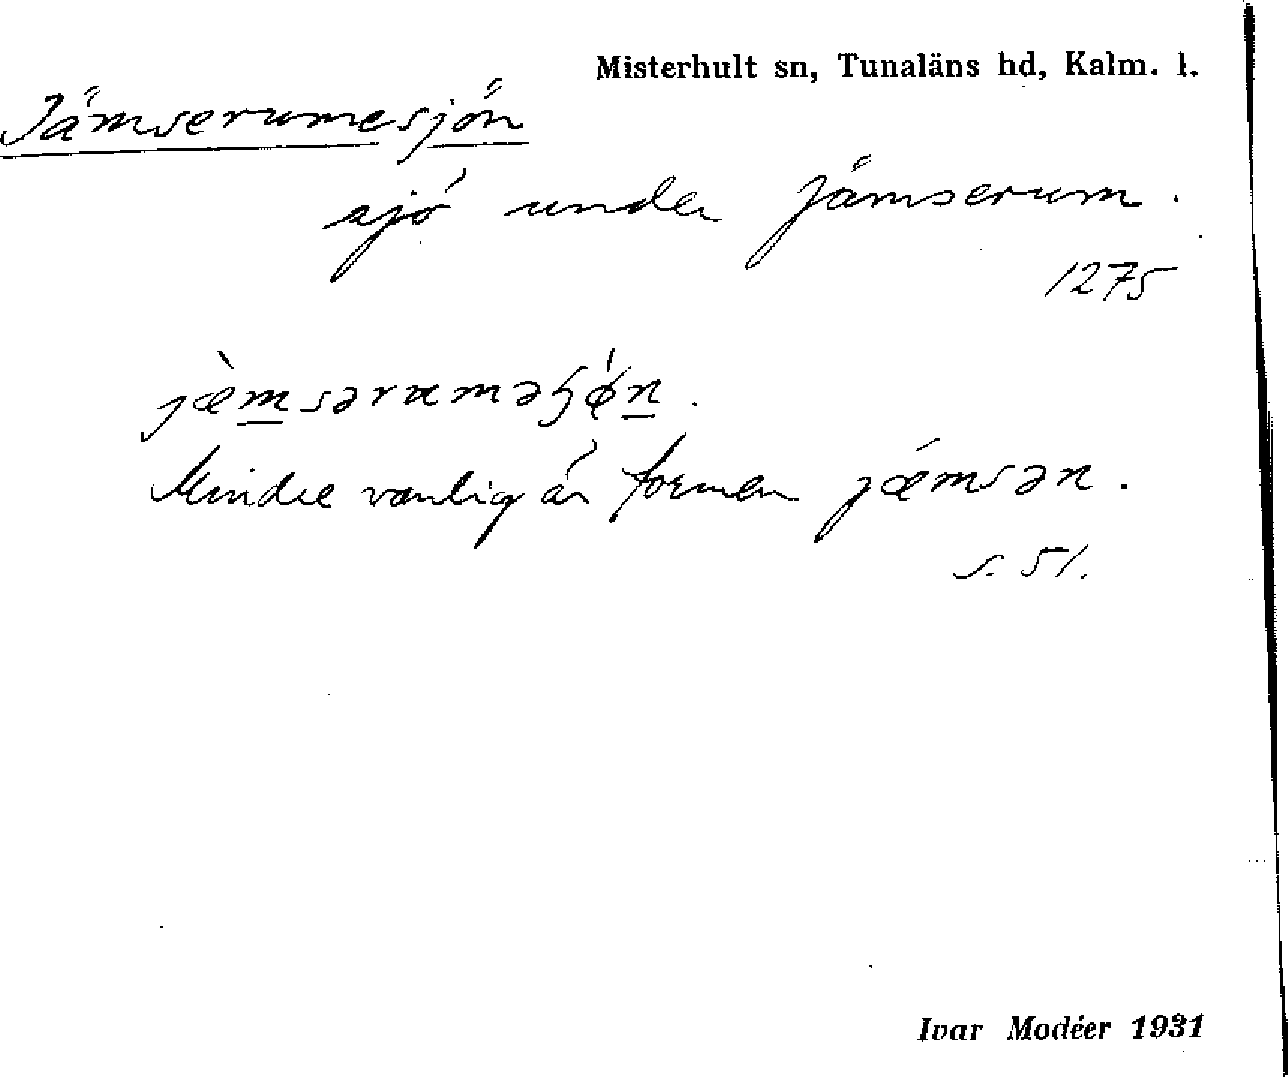 Misterhult sn, Tunaläns hd, Kalm. l.
Jämserumesjön
sjö under Jämserum.
1275
jæ̀m̲sərɷməʂǿn̲.
Mindre vanlig är formen jǽmsən.
s. 51.
Ivar Modéer 1931